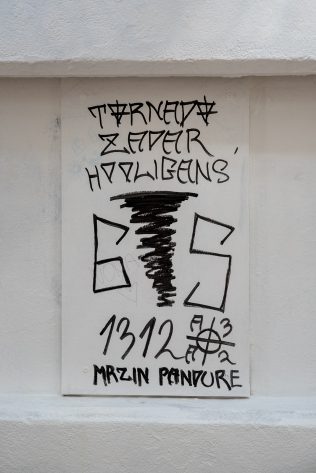 TORNADO
ZADAR
HOOLIGANS
6 5
1312 A 3
A 2
MRZIN PANDURE